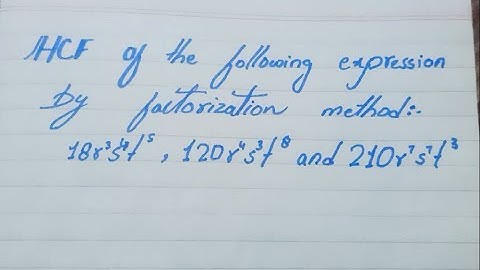 HCF of the following expression
by factorization method:-
18r³s⁴t⁵, 120r⁴s³t⁸ and 210r⁷s⁷t³